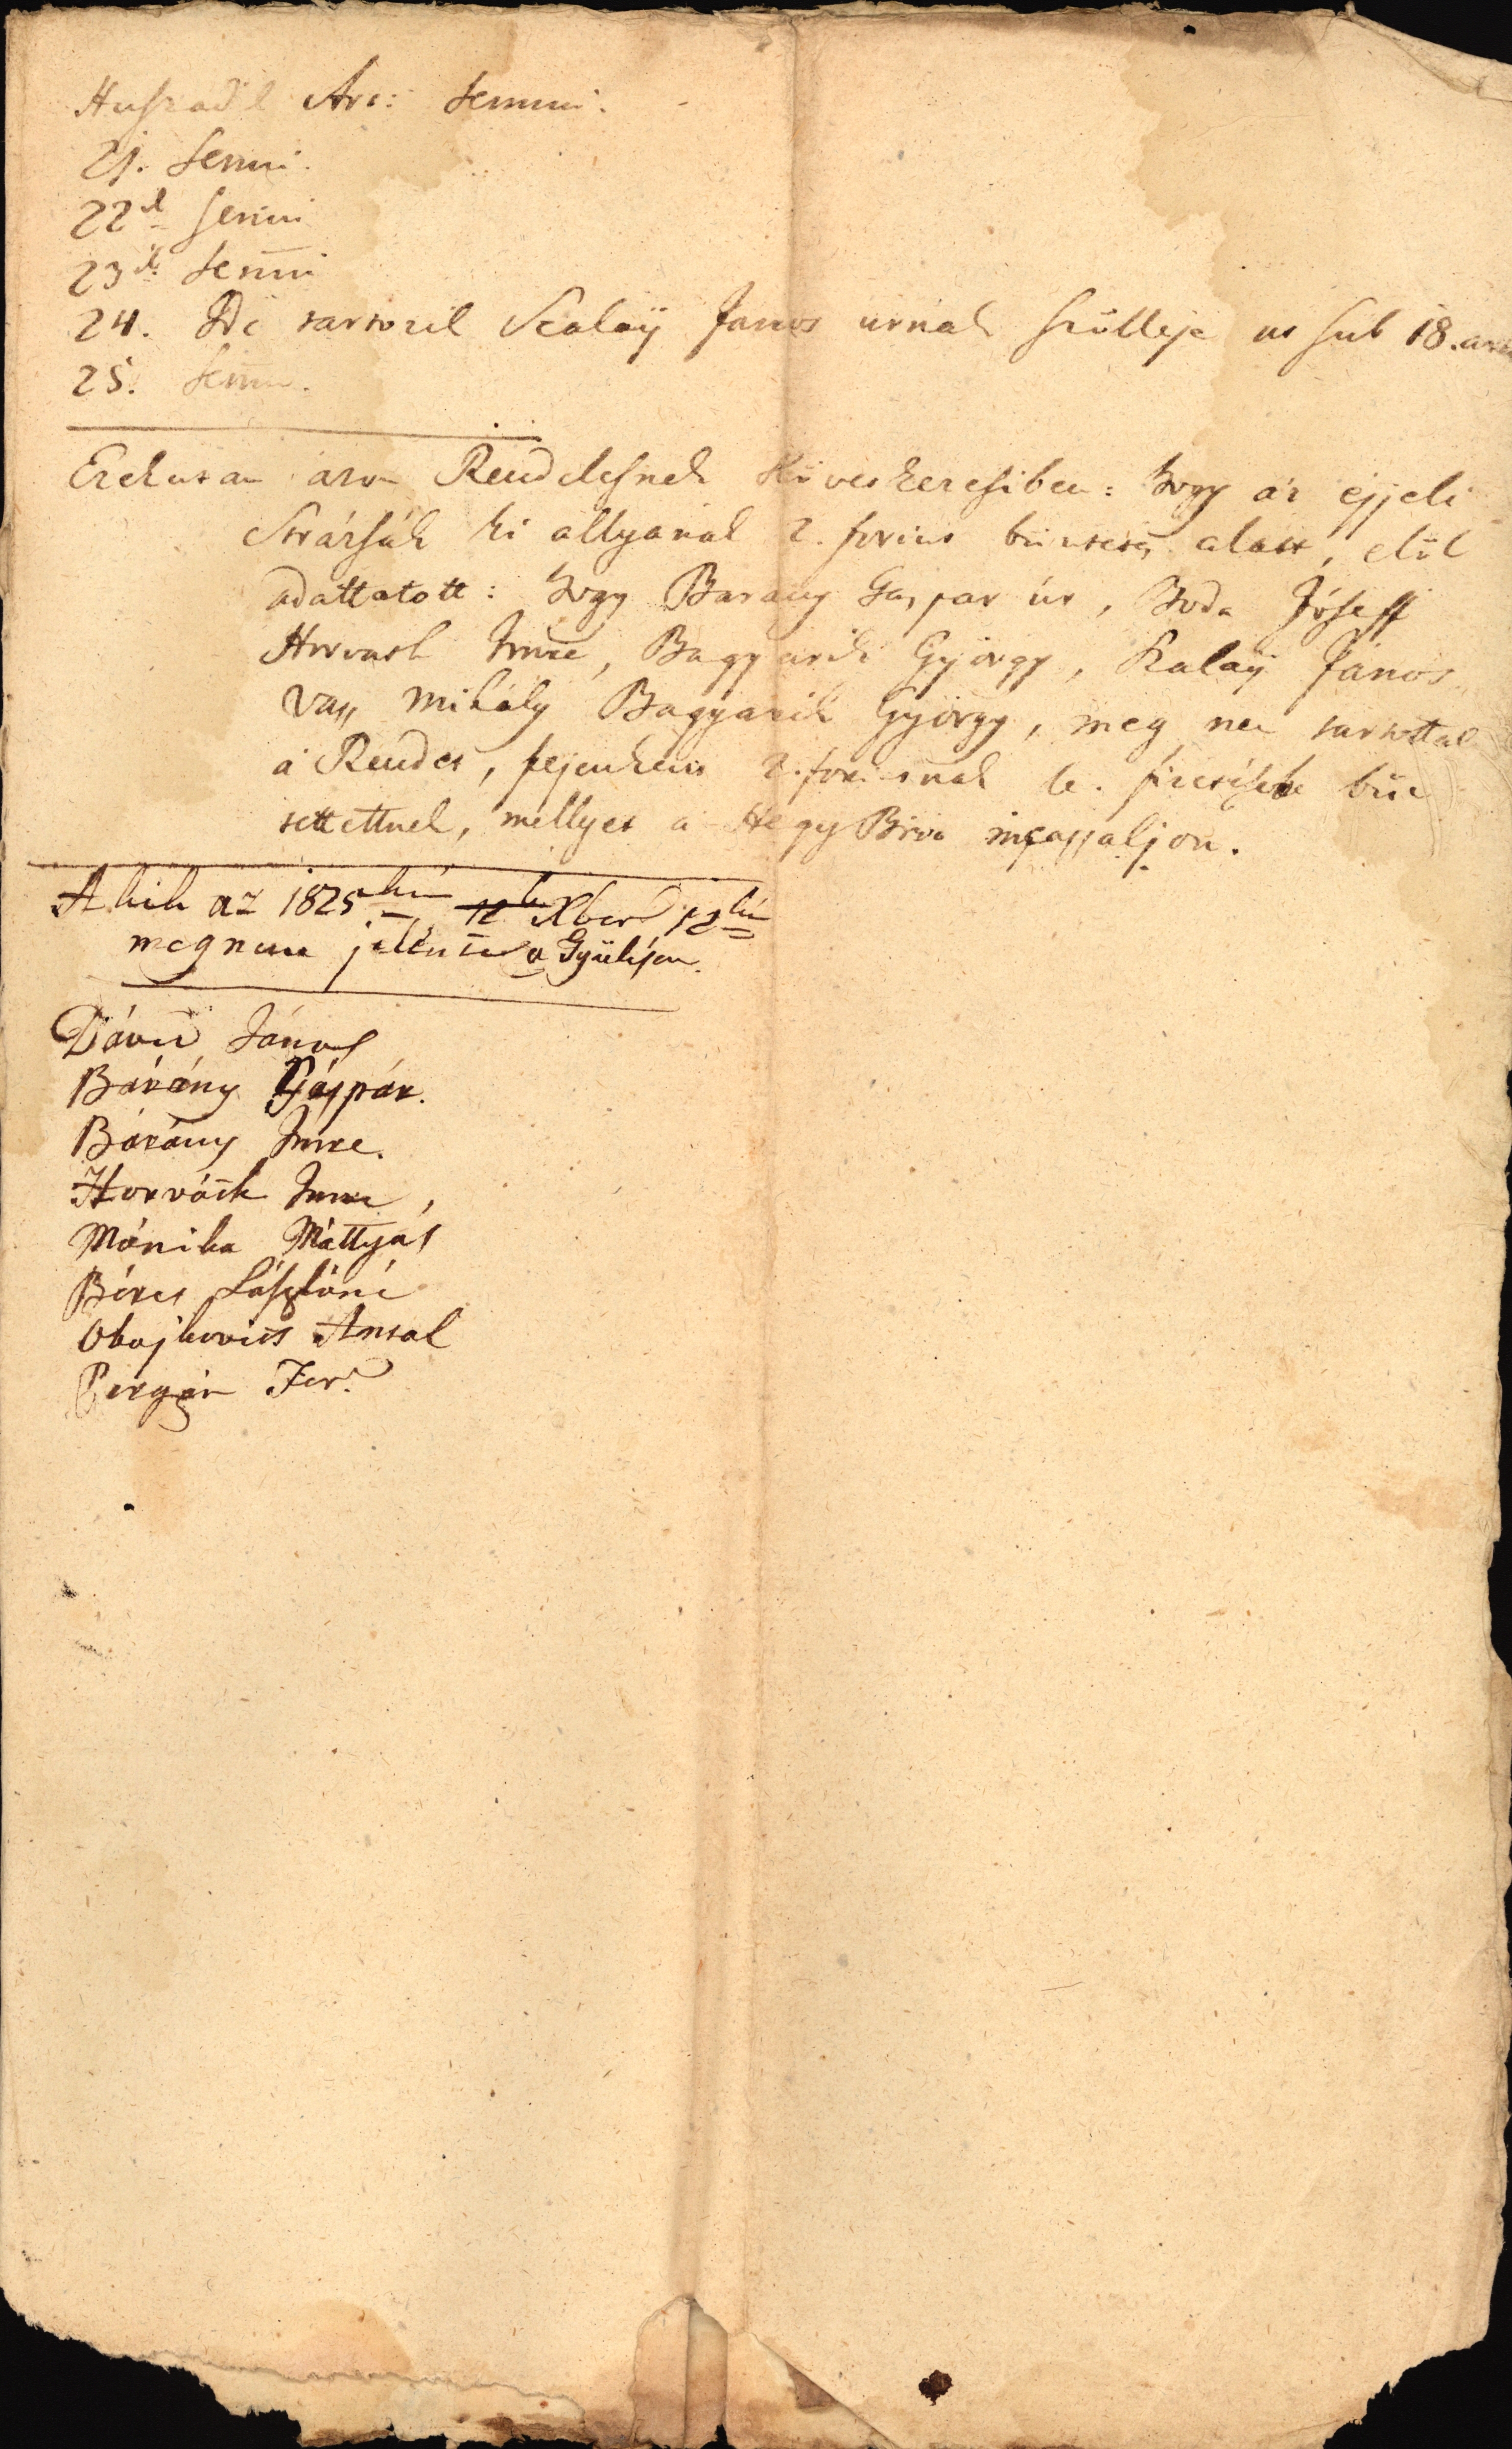 Huszadik Art: Semmi.
21. Semmi.
22ik Semmi
23ik Semmi
24. Ide tartozik Szalaÿ Janos urnak szölleje ut sub 18. art
25. Semmi.
Ezek utan azon Rendelesnek Következesiben: hogy az éjjeli
Strázsák ki allyanak 2. forint büntetes alatt, elöl
adattatott: hogy Barany Gaspar úr, Boda Jóseff
Horvath Imre, Bagyarik György, Szalaÿ János
Vass Mihály Bagyarik György, meg nem tartottak
a Rendet, fejenkent 2. forintnak le. fizetésébe bün
tettettnek, mellyet a Hegy Biro incassaljon.
A kik az 1825ki 12ik Xber 12kén
meg nem jelentek a Gyülésen.
Dávid János
Bárány Gáspár.
Bárány Imre.
Horváth Imre,
Mónika Máttyás
Béres Lászlóné
Obajkovits Antal
Pergár Fer.